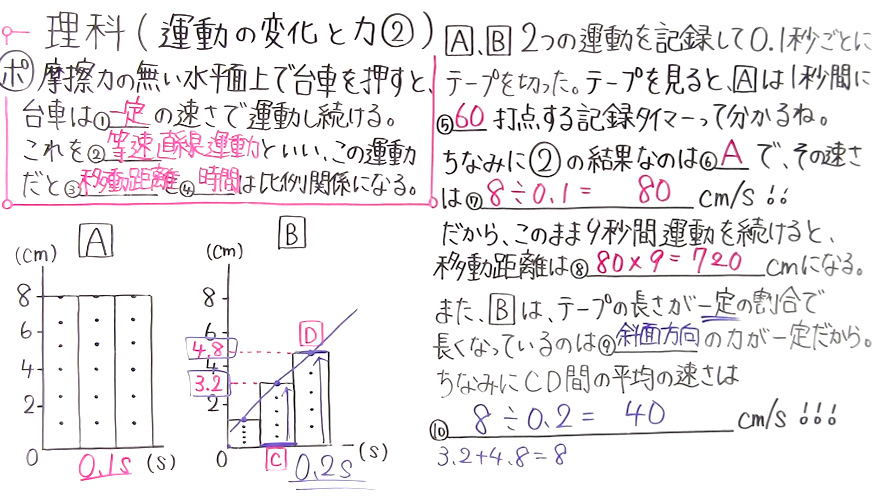 理科(運動の変化と力②)
ポ 摩擦力の無い水平面上で台車を押すと、
台車は①一定の速さで運動し続ける。
これを②等速直線運動といい、この運動
だと③移動距離と④時間は比例関係になる。
A
(cm)
8
6
4
2
0
0.1s (s)
B
(cm)
8
6
4.8
4
3.2
2
0
D
C
0.2s (s)
A、B 2つの運動を記録して0.1秒ごとに
テープを切った。テープを見ると、Aは1秒間に
⑤60打点する記録タイマーって分かるね。
ちなみに②の結果なのは⑥Aで、その速さ
は⑦8÷0.1= 80 cm/s!!
だから、このまま9秒間運動を続けると、
移動距離は⑧80×9=720 cmになる。
また、Bは、テープの長さが一定の割合で
長くなっているのは⑨斜面方向の力が一定だから。
ちなみにCD間の平均の速さは
⑩ 8÷0.2= 40 cm/s!!!
3.2+4.8=8